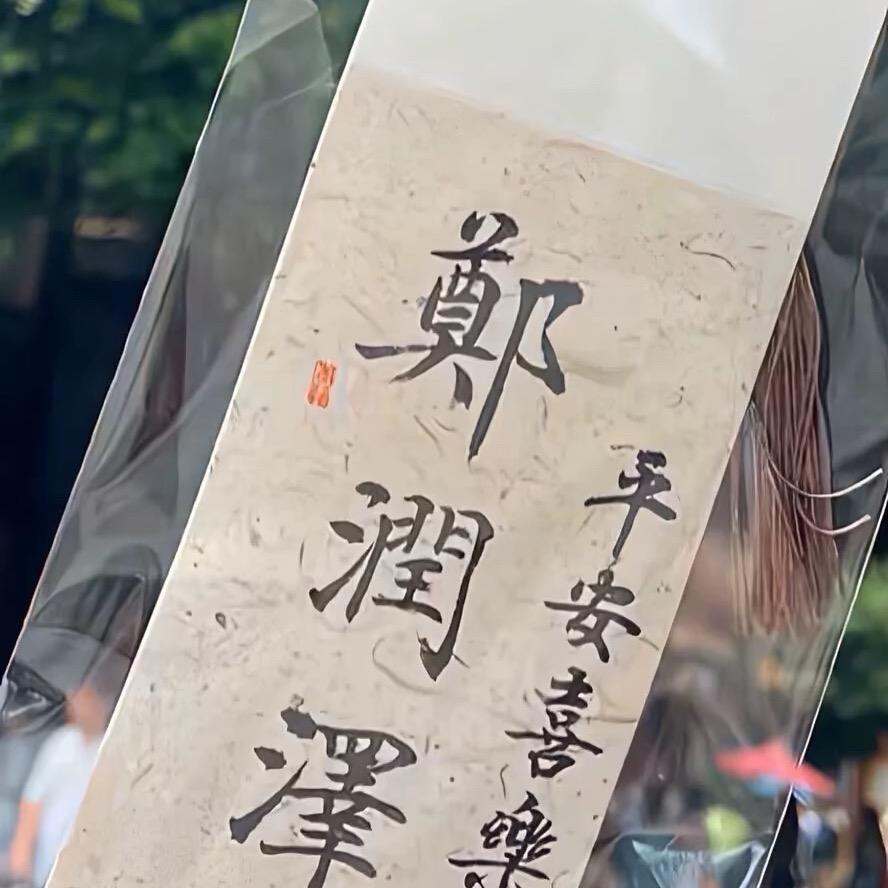 平安喜樂
鄭潤澤